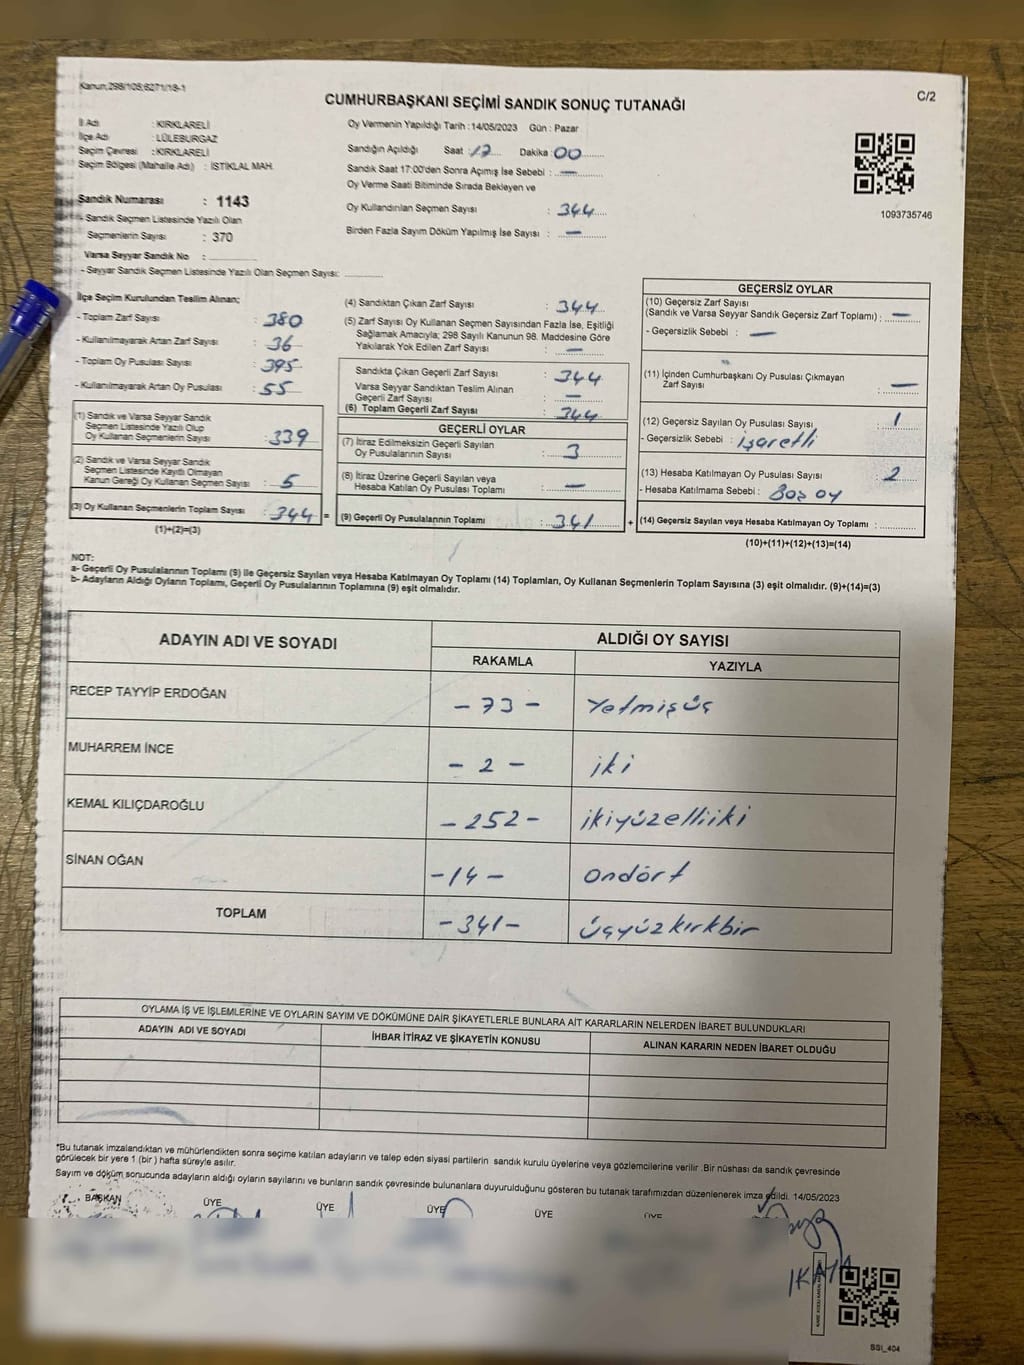 Kanun;298/105;6271/18-1
C/2
CUMHURBAŞKANI SEÇİMİ SANDIK SONUÇ TUTANAĞI
İl Adı : KIRKLARELİ
İlçe Adı : LÜLEBURGAZ
Seçim Çevresi : KIRKLARELİ
Seçim Bölgesi (Mahalle Adı) : İSTİKLAL MAH.
Sandık Numarası : 1143
- Sandık Seçmen Listesinde Yazılı Olan
Seçmenlerin Sayısı : 370
Varsa Seyyar Sandık No :
- Seyyar Sandık Seçmen Listesinde Yazılı Olan Seçmen Sayısı:
Oy Vermenin Yapıldığı Tarih : 14/05/2023 Gün : Pazar
Sandığın Açıldığı Saat : 17 Dakika : 00
Sandık Saat 17:00'den Sonra Açımış İse Sebebi : —
Oy Verme Saati Bitiminde Sırada Bekleyen ve
Oy Kullandırılan Seçmen Sayısı : 344
Birden Fazla Sayım Döküm Yapılmış İse Sayısı : —
1093735746
İlçe Seçim Kurulundan Teslim Alınan;
- Toplam Zarf Sayısı : 380
- Kullanılmayarak Artan Zarf Sayısı : 36
- Toplam Oy Pusulası Sayısı : 395
- Kullanılmayarak Artan Oy Pusulası : 55
(1) Sandık ve Varsa Seyyar Sandık
Seçmen Listesinde Yazılı Olup
Oy Kullanan Seçmenlerin Sayısı : 339
(2) Sandık ve Varsa Seyyar Sandık
Seçmen Listesinde Kayıtlı Olmayan
Kanun Gereği Oy Kullanan Seçmen Sayısı : 5
(3) Oy Kullanan Seçmenlerin Toplam Sayısı : 344 =
(1)+(2)=(3)
(4) Sandıktan Çıkan Zarf Sayısı : 344
(5) Zarf Sayısı Oy Kullanan Seçmen Sayısından Fazla İse, Eşitliği
Sağlamak Amacıyla; 298 Sayılı Kanunun 98. Maddesine Göre
Yakılarak Yok Edilen Zarf Sayısı : —
Sandıkta Çıkan Geçerli Zarf Sayısı : 344
Varsa Seyyar Sandıktan Teslim Alınan
Geçerli Zarf Sayısı : —
(6) Toplam Geçerli Zarf Sayısı : 344
GEÇERLİ OYLAR
(7) İtiraz Edilmeksizin Geçerli Sayılan
Oy Pusulalarının Sayısı : 3
(8) İtiraz Üzerine Geçerli Sayılan veya
Hesaba Katılan Oy Pusulası Toplamı : —
(9) Geçerli Oy Pusulalarının Toplamı : 341 +
GEÇERSİZ OYLAR
(10) Geçersiz Zarf Sayısı
(Sandık ve Varsa Seyyar Sandık Geçersiz Zarf Toplamı) : —
- Geçersizlik Sebebi : —
(11) İçinden Cumhurbaşkanı Oy Pusulası Çıkmayan
Zarf Sayısı : —
(12) Geçersiz Sayılan Oy Pusulası Sayısı : 1
- Geçersizlik Sebebi : işaretli
(13) Hesaba Katılmayan Oy Pusulası Sayısı : 2
- Hesaba Katılmama Sebebi : Boş oy
(14) Geçersiz Sayılan veya Hesaba Katılmayan Oy Toplamı :
(10)+(11)+(12)+(13)=(14)
NOT:
a- Geçerli Oy Pusulalarının Toplamı (9) ile Geçersiz Sayılan veya Hesaba Katılmayan Oy Toplamı (14) Toplamları, Oy Kullanan Seçmenlerin Toplam Sayısına (3) eşit olmalıdır. (9)+(14)=(3)
b- Adayların Aldığı Oyların Toplamı, Geçerli Oy Pusulalarının Toplamına (9) eşit olmalıdır.
ADAYIN ADI VE SOYADI
ALDIĞI OY SAYISI
RAKAMLA YAZIYLA
RECEP TAYYİP ERDOĞAN - 73 - Yetmişüç
MUHARREM İNCE - 2 - iki
KEMAL KILIÇDAROĞLU - 252 - ikiyüzelliiki
SİNAN OĞAN - 14 - ondört
TOPLAM - 341 - Üçyüzkırkbir
OYLAMA İŞ VE İŞLEMLERİNE VE OYLARIN SAYIM VE DÖKÜMÜNE DAİR ŞİKAYETLERLE BUNLARA AİT KARARLARIN NELERDEN İBARET BULUNDUKLARI
ADAYIN ADI VE SOYADI İHBAR İTİRAZ VE ŞİKAYETİN KONUSU ALINAN KARARIN NEDEN İBARET OLDUĞU
*Bu tutanak imzalandıktan ve mühürlendikten sonra seçime katılan adayların ve talep eden siyasi partilerin sandık kurulu üyelerine veya gözlemcilerine verilir .Bir nüshası da sandık çevresinde
görülecek bir yere 1 (bir ) hafta süreyle asılır.
Sayım ve döküm sonucunda adayların aldığı oyların sayılarını ve bunların sandık çevresinde bulunanlara duyurulduğunu gösteren bu tutanak tarafımızdan düzenlenerek imza edildi. 14/05/2023
BAŞKAN ÜYE ÜYE ÜYE ÜYE ÜYE
SSI_404